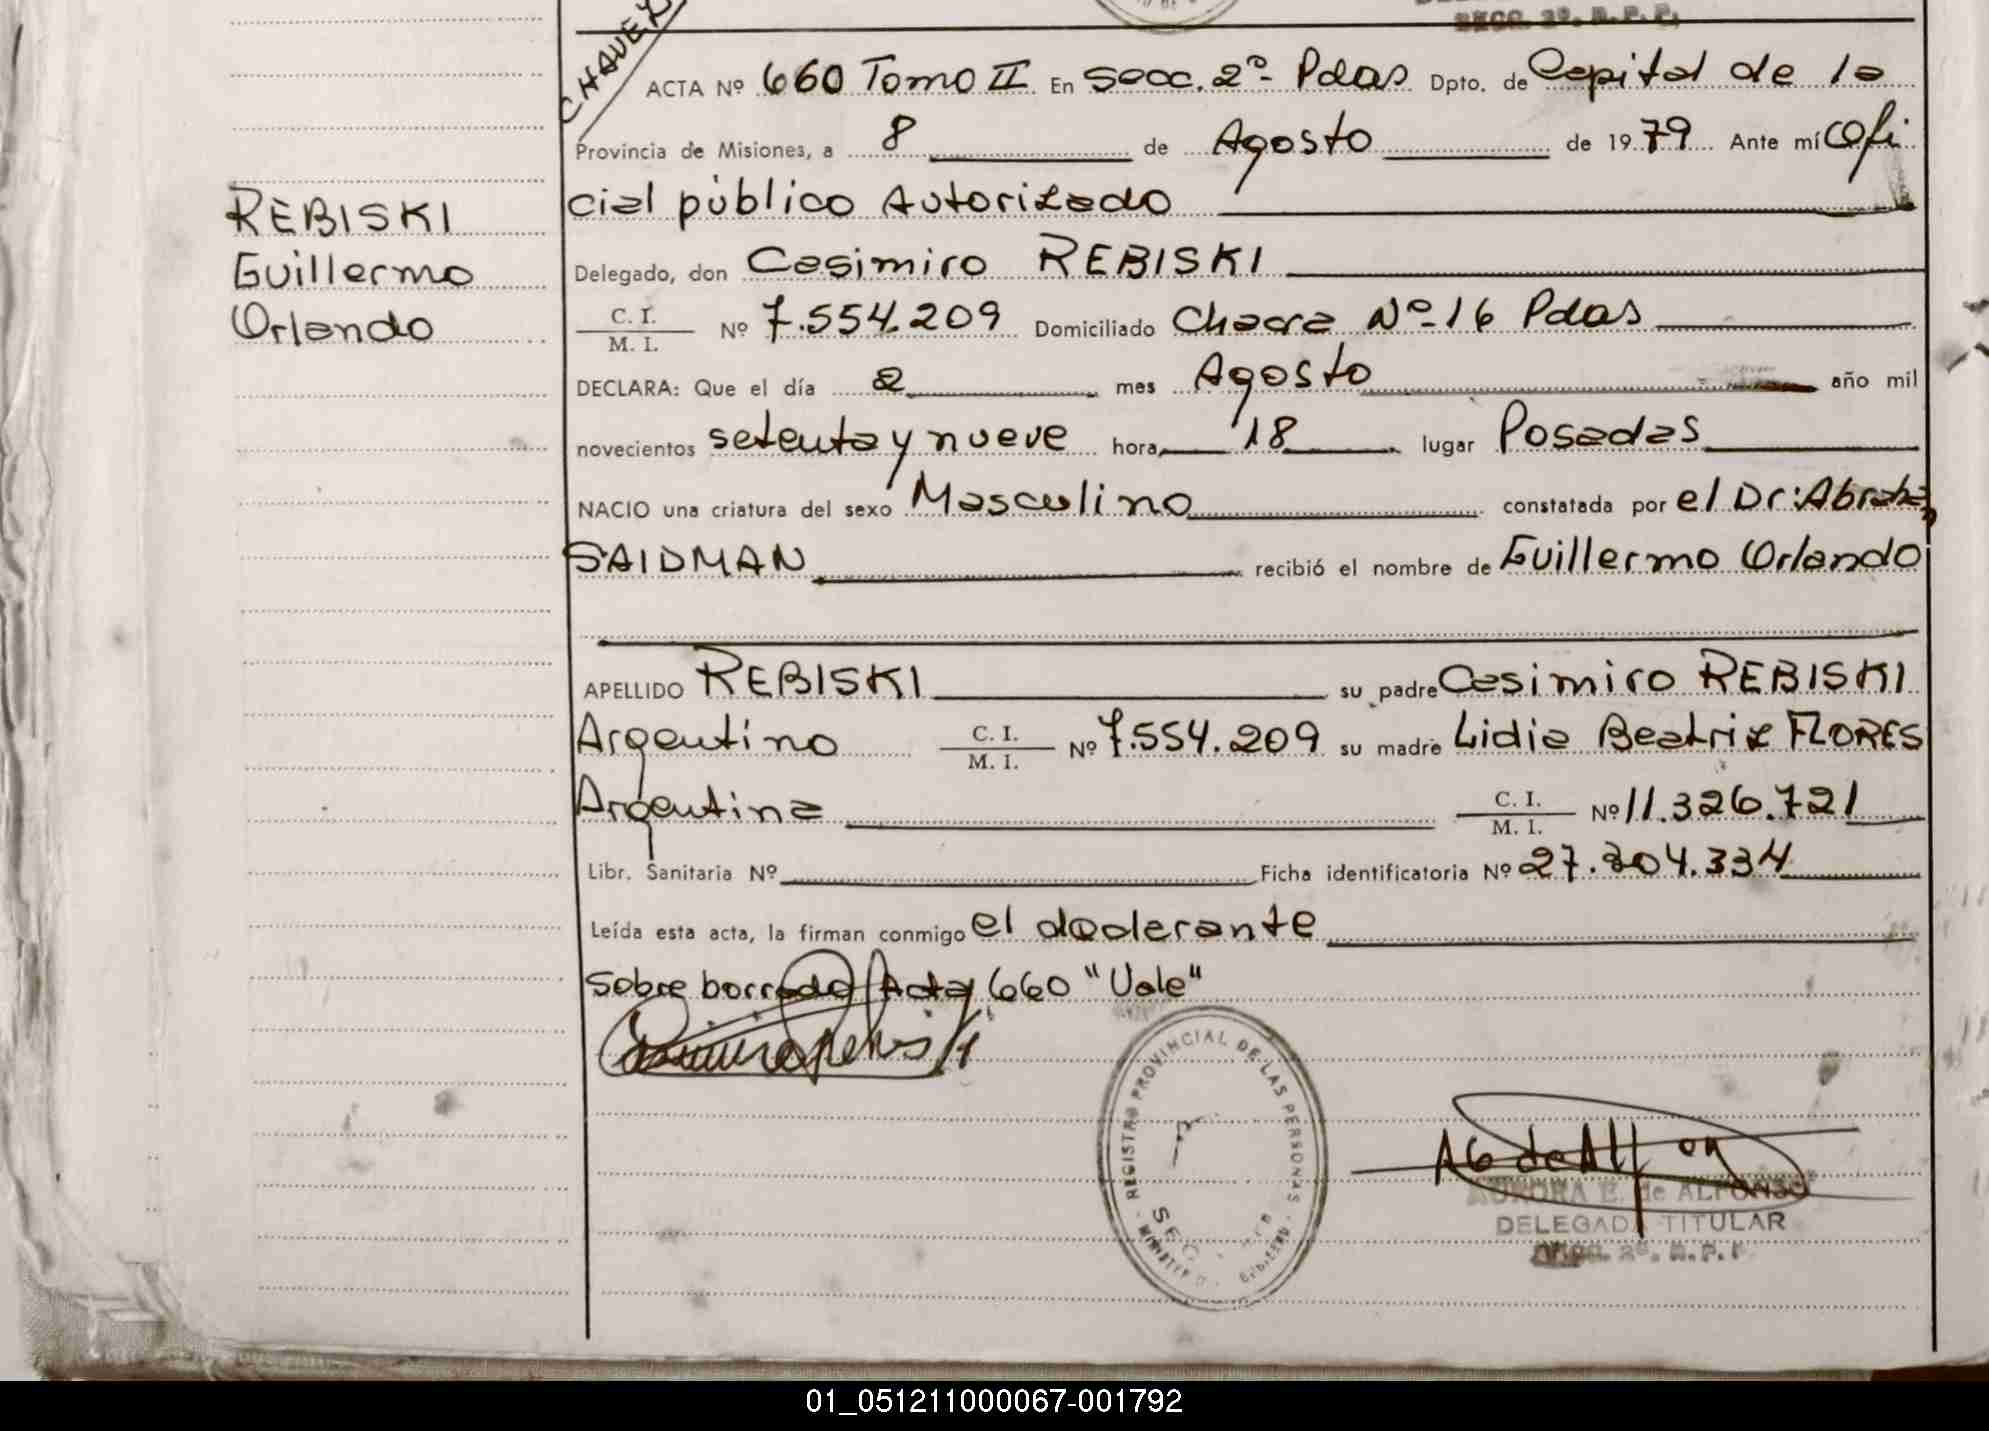 SECC. 2º. R. P. P.
CHAVEZ
ACTA Nº 660 Tomo II En Secc. 2º- Pdas Dpto. de Capital de la
Provincia de Misiones, a 8 de Agosto de 1979 Ante mí Ofi
cial público Autorizado
REBISKI
Guillermo
Orlando
Delegado, don Casimiro REBISKI
C. I.
M. I. Nº 7.554.209 Domiciliado Chacra Nº-16 Pdas
DECLARA: Que el día 2 mes Agosto año mil
novecientos setenta y nueve hora 18 lugar Posadas
NACIO una criatura del sexo Masculino constatada por el Dr: Abraham
SAIDMAN recibió el nombre de Guillermo Orlando
APELLIDO REBISKI su padre Casimiro REBISKI
Argentino C. I.
M. I. Nº 7.554.209 su madre Lidia Beatriz FLORES
Argentina C. I.
M. I. Nº 11.326.721
Libr. Sanitaria Nº Ficha identificatoria Nº 27.304.334
Leída esta acta, la firman conmigo el declarante
Sobre borrado Acta 660 "Vale"
REGISTRO PROVINCIAL DE LAS PERSONAS
AURORA E. de ALFONSO
DELEGADA TITULAR
SECC. 2º. R. P. P.
01_051211000067-001792